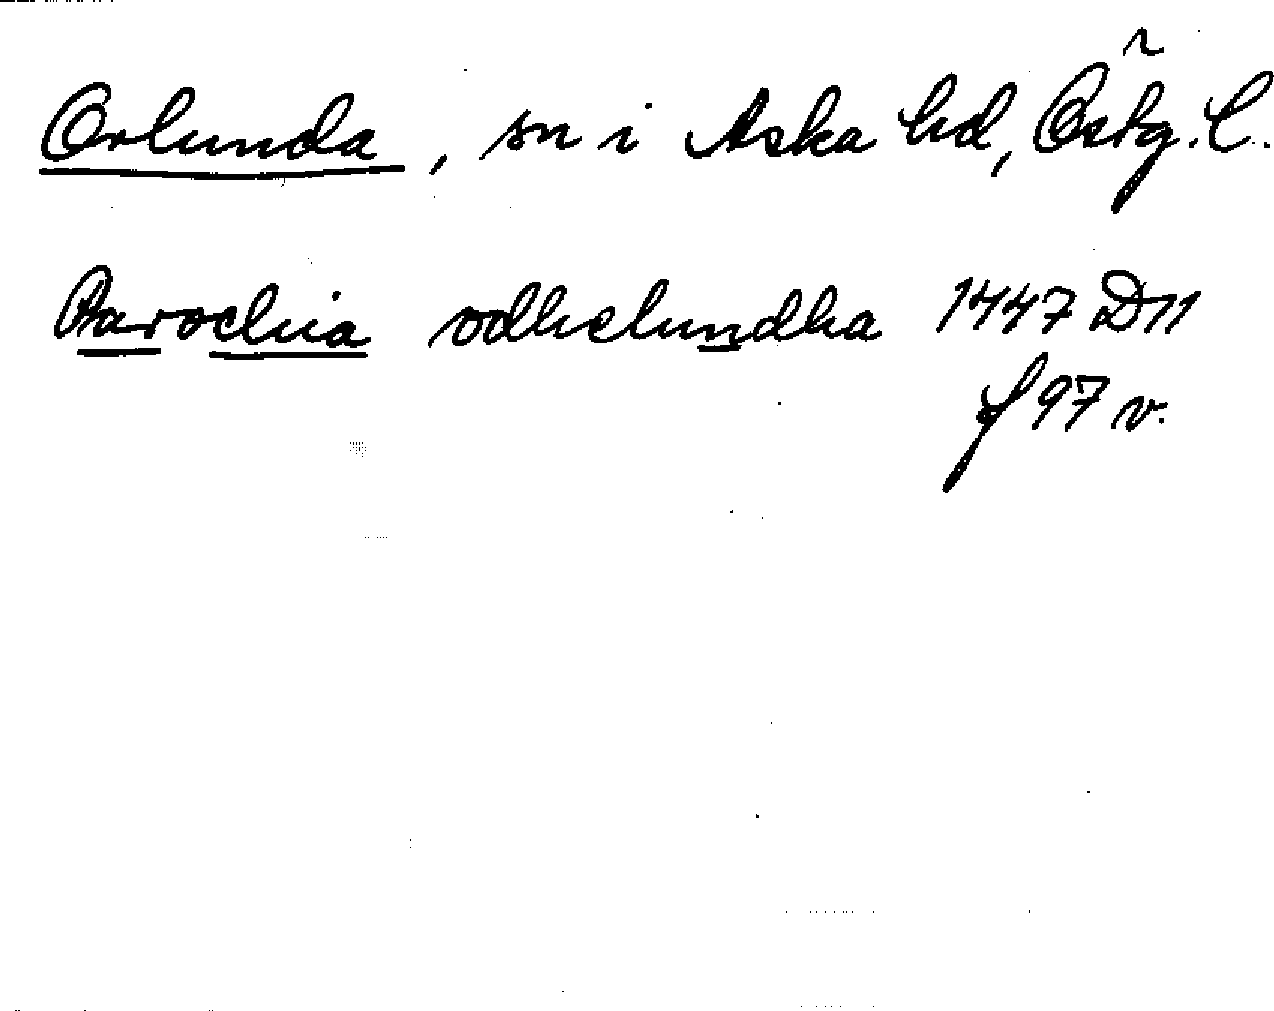 Orlunda, sn i Aska hd, Östg. l.
Parochia odhelundha 1447 D 11
f 97 v.